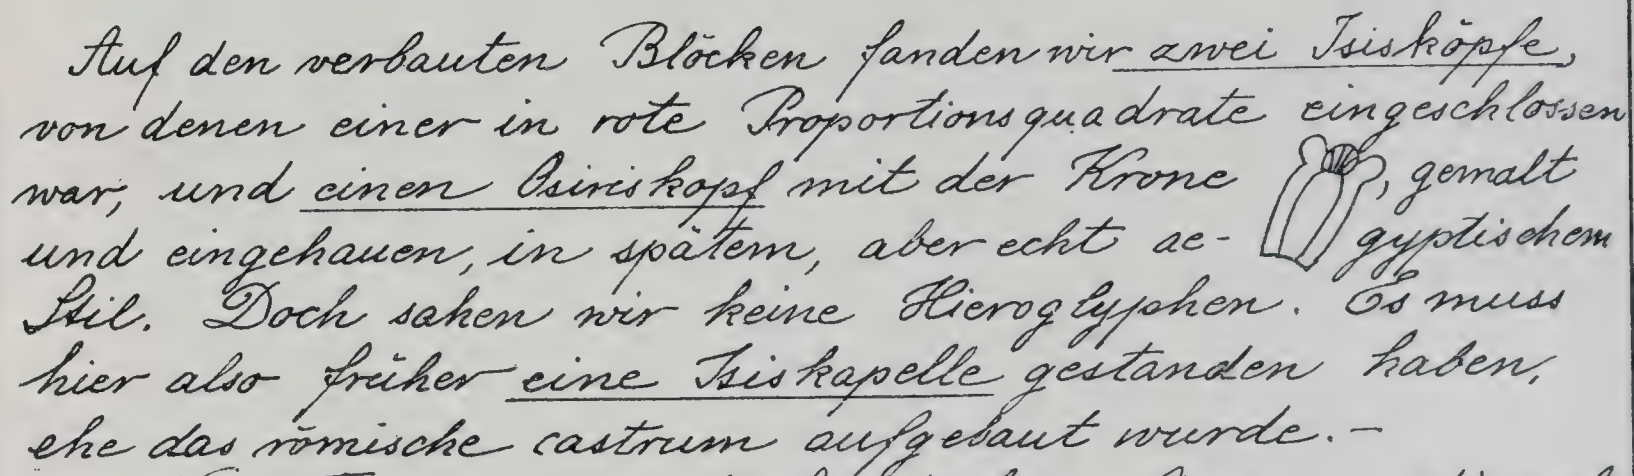 Auf den verbauten Blöcken fanden wir zwei Isisköpfe,
von denen einer in rote Proportionsquadrate eingeschlossen
war, und einen Osiriskopf mit der Krone , gemalt
und eingehauen, in spätem, aber echt ae- gyptischem
Stil. Doch sahen wir keine Hieroglyphen. Es muss
hier also früher eine Isiskapelle gestanden haben,
ehe das römische castrum aufgebaut wurde.-